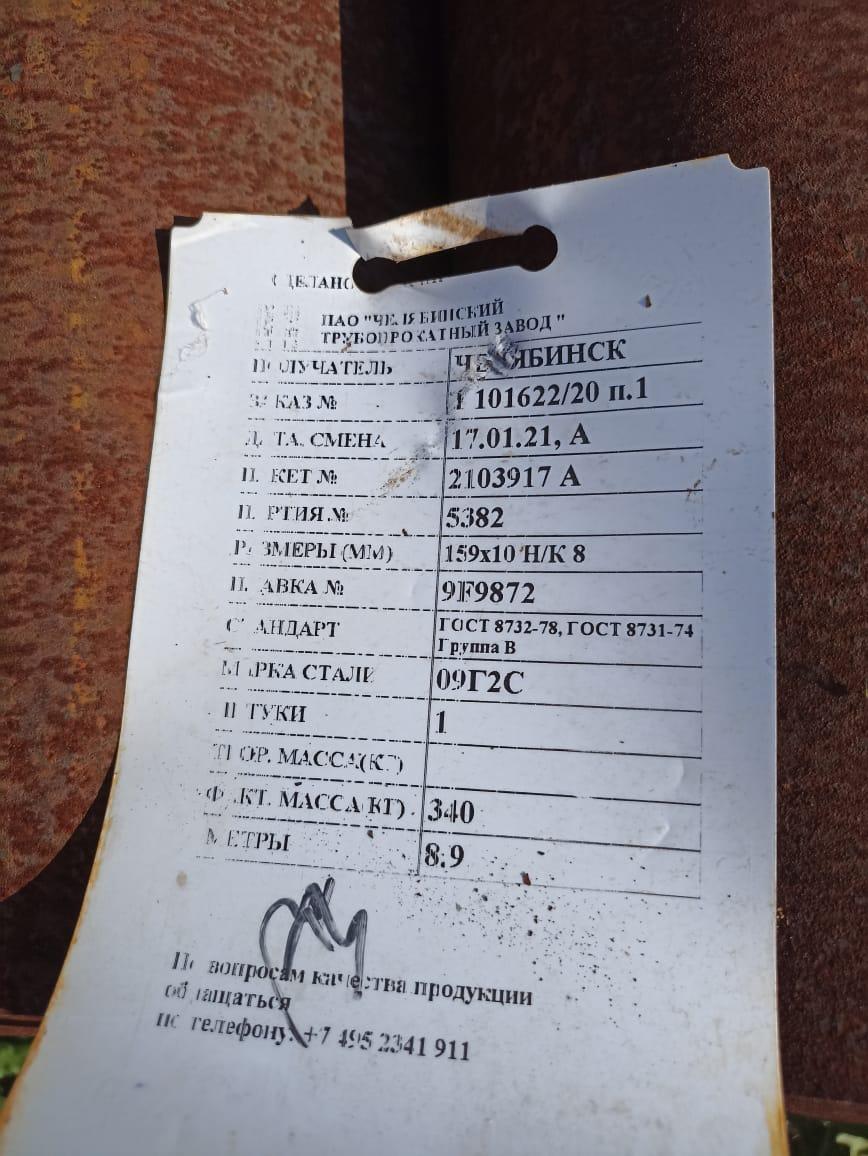 СДЕЛАНО
ПАО "ЧЕЛЯБИНСКИЙ
ТРУБОПРОКАТНЫЙ ЗАВОД"
ПОЛУЧАТЕЛЬ ЧЕЛЯБИНСК
ЗАКАЗ № 101622/20 п.1
ДАТА, СМЕНА 17.01.21, А
ПАКЕТ № 2103917 А
ПАРТИЯ № 5382
РАЗМЕРЫ (ММ) 159х10 Н/К 8
ПЛАВКА № 9F9872
СТАНДАРТ ГОСТ 8732-78, ГОСТ 8731-74
Группа В
МАРКА СТАЛИ 09Г2С
ШТУКИ 1
ТЕОР. МАССА(КГ)
ФАКТ. МАССА(КГ) 340
МЕТРЫ 8.9
По вопросам качества продукции
обращаться
по телефону: +7 495 2341 911